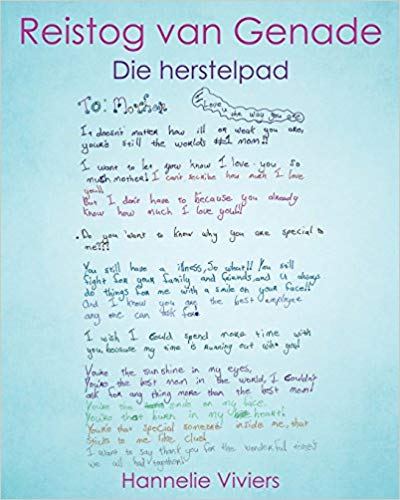 Reistog van Genade
Die herstelpad
To: Mother
I Love u the way you are
It doesn't matter how ill or weak you are,
your's still the worlds #1 mom!!
I want to let you know I love you so
much mother! I can't sscribe how much I love
you!!
But I don't have to because you already
know how much I love you!!
. Do you want to know why you are special to
me?!?
You still have a illness, So what!! You still
fight for your family and friends, and U always
do things for me with a smile on your face!!
And I know you are the best employee
any one can ask for.
I wish I could spend more time with
you because my time is running out with you!
You're the sunshine in my eyes,
You're the best mom in the world, I couldn't
ask for any thing more than the best mom!
You're the ends on my face,
You're that burn in my heart!
You're that special someone inside me, that
sticks to me like clue!
I want to say thank you for the wonderful times
we all had together!
Hannelie Viviers